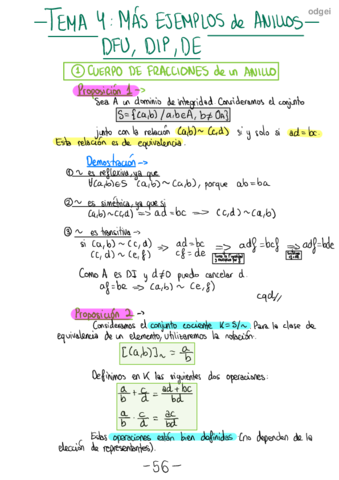 odgei
TEMA 4: MÁS EJEMPLOS de ANILLOS
DFU, DIP, DE
① CUERPO DE FRACCIONES de un ANILLO
Proposición 1 →
Sea A un dominio de integridad Consideramos el conjunto
S = {(a,b) / a,b ∈ A, b ≠ 0A}
junto con la relación (a,b) ~ (c,d) si y solo si ad = bc.
Esta relación es de equivalencia.
Demostración →
① ~ es reflexiva, ya que
∀(a,b) ∈ S (a,b) ~ (a,b), porque ab = ba
② ~ es simétrica, ya que si
(a,b) ~ (c,d) => ad = bc => (c,d) ~ (a,b)
③ ~ es transitiva →
si (a,b) ~ (c,d) => ad = bc => adf = bcf => adf = bde
(c,d) ~ (e,f) cf = de
Como A es DI y d ≠ 0 puedo cancelar d.
af = be => (a,b) ~ (e,f)
cqd//
Proposición 2 →
Consideramos el conjunto cociente K = S/~. Para la clase de
equivalencia de un elemento, utilizaremos la notación:
[(a,b)]~ = a/b
Definimos en K las siguientes dos operaciones:
a/b + c/d = ad + bc / bd
a/b · c/d = ac/bd
Estas operaciones están bien definidas (no dependen de la
elección de representantes).
- 56 -